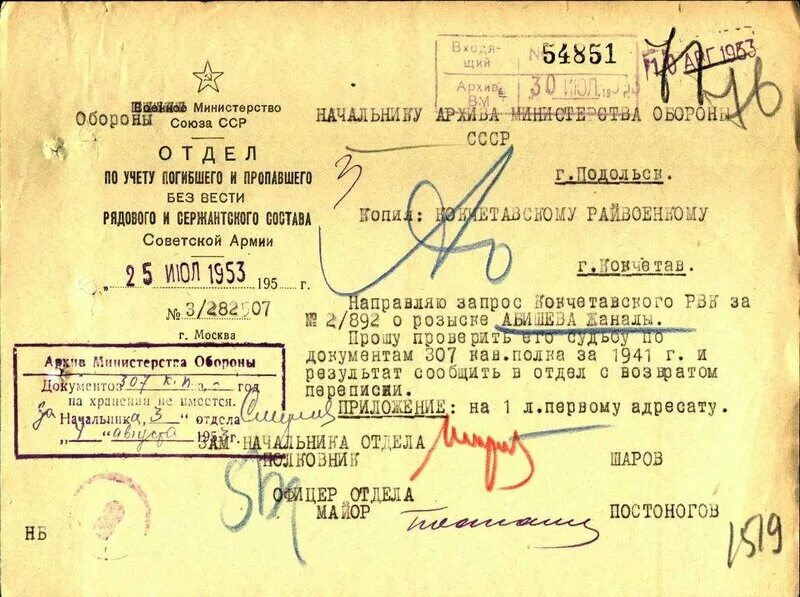 Входя-
щий № 54851
Архив
ВМ 30 ИЮЛ 1953
10 АВГ 1953
77
76
Военное Министерство
Обороны
Союза ССР
ОТДЕЛ
ПО УЧЕТУ ПОГИБШЕГО И ПРОПАВШЕГО
БЕЗ ВЕСТИ
РЯДОВОГО И СЕРЖАНТСКОГО СОСТАВА
Советской Армии
„ 25 ИЮЛ 1953 195 г.
№ 3/282507
г. Москва
НАЧАЛЬНИКУ АРХИВА МИНИСТЕРСТВА ОБОРОНЫ
СССР
г.Подольск.
3
Копия: КОКЧЕТАВСКОМУ РАЙВОЕНКОМУ
г.Кокчетав.
Направляю запрос Кокчетавского РВК за
№ 2/892 о розыске АБИШЕВА ЖАНАЛЫ.
Прошу проверить его судьбу по
документам 307 кав.полка за 1941 г. и
результат сообщить в отдел с возвратом
переписки.
ПРИЛОЖЕНИЕ: на 1 л.первому адресату.
Архив Министерства Обороны
Документов 307 к.п. за год
на хранении не имеется.
За Начальника „ 3 " отдела
„ 1 " августа 1953 г.
ЗАМ НАЧАЛЬНИКА ОТДЕЛА
ПОЛКОВНИК ШАРОВ
ОФИЦЕР ОТДЕЛА
МАЙОР ПОСТОНОГОВ
НБ
1519